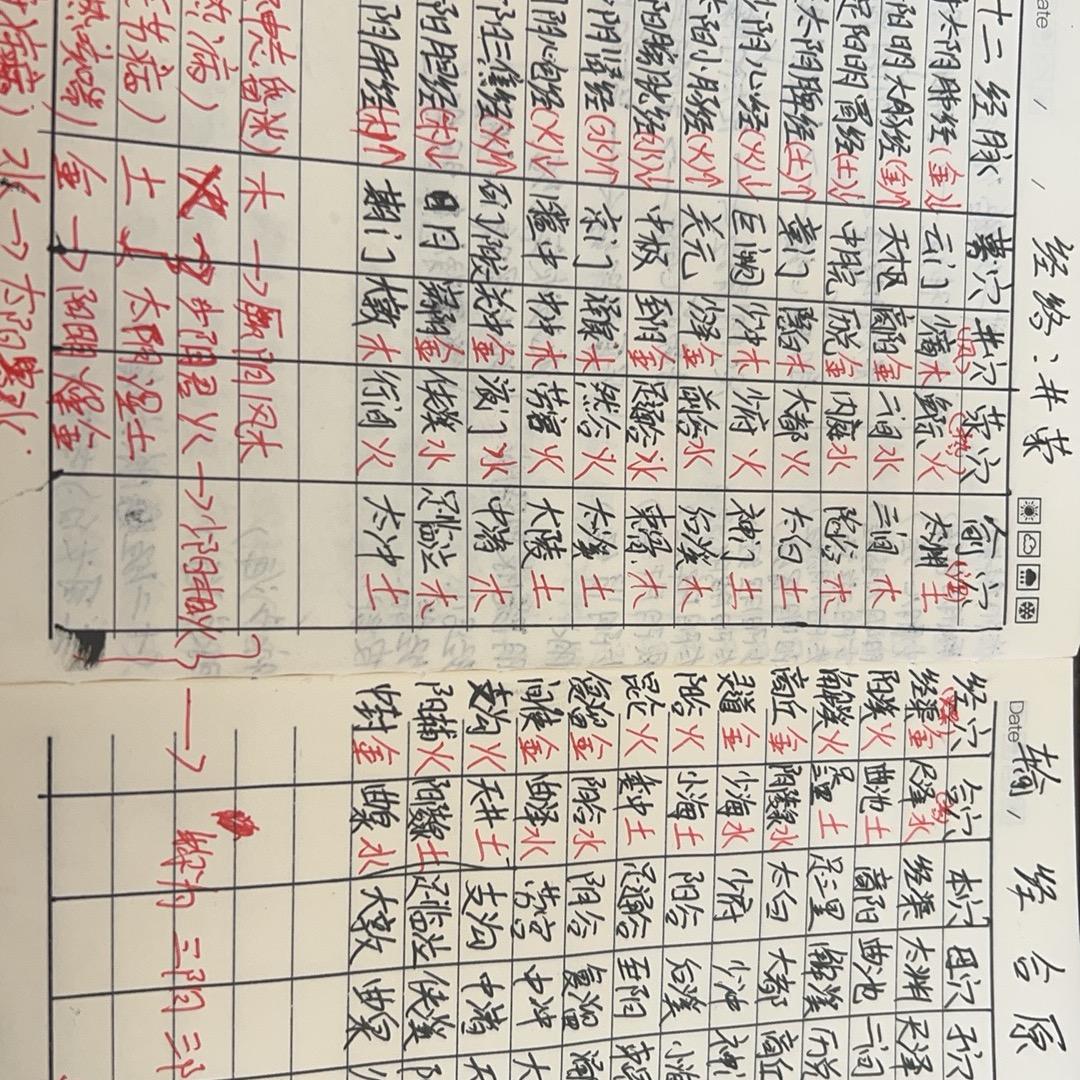 经络:井荣 输 经 合 原
Date
Date
十二经脉 募穴 井穴(风) 荥穴(热) 俞穴(湿) 经穴(燥) 合穴 本穴 母穴 子穴
太阴肺经 金 云门 少商木 鱼际火 太渊土 经渠金 尺泽水 经渠 太渊 尺泽
阳明大肠经(金) 天枢 商阳金 二间水 三间木 阳溪火 曲池土 商阳 曲池 二间
阳明胃经(土) 中脘 厉兑金 内庭水 陷谷木 解溪火 足三里土 足三里 解溪 厉兑
太阴脾经(土) 章门 隐白木 大都火 太白土 商丘金 阴陵泉水 太白 大都 商丘
少阴心经(火) 巨阙 少冲木 少府火 神门土 灵道金 少海水 少府 少冲 神门
太阳小肠经(火) 关元 少泽金 前谷水 后溪木 阳谷火 小海土 阳谷 后溪 小海
阳膀胱经(水) 中极 至阴金 足通谷水 束骨木 昆仑火 委中土 足通谷 至阴 束骨
阴肾经(水) 京门 涌泉木 然谷火 太溪土 复溜金 阴谷水 阴谷 复溜 涌
阴心包经(火) 膻中 中冲木 劳宫火 大陵土 间使金 曲泽水 劳宫 中冲 大
阳三焦经(火) 石门 关冲金 液门水 中渚木 支沟火 天井土 支沟 中渚 天
阳胆经(木) 日月 足窍阴金 侠溪水 足临泣木 阳辅火 阳陵泉土 足临泣 侠溪 阳
阴肝经(木) 期门 大敦木 行间火 太冲土 中封金 曲泉水 大敦 曲泉
昏迷) 木 → 厥阴风木
病) 火 → 少阴君火 → 少阳相火 } → 称为 三阴三阳
病) 土 → 太阴湿土
金 → 阳明燥金
水 → 太阳寒水